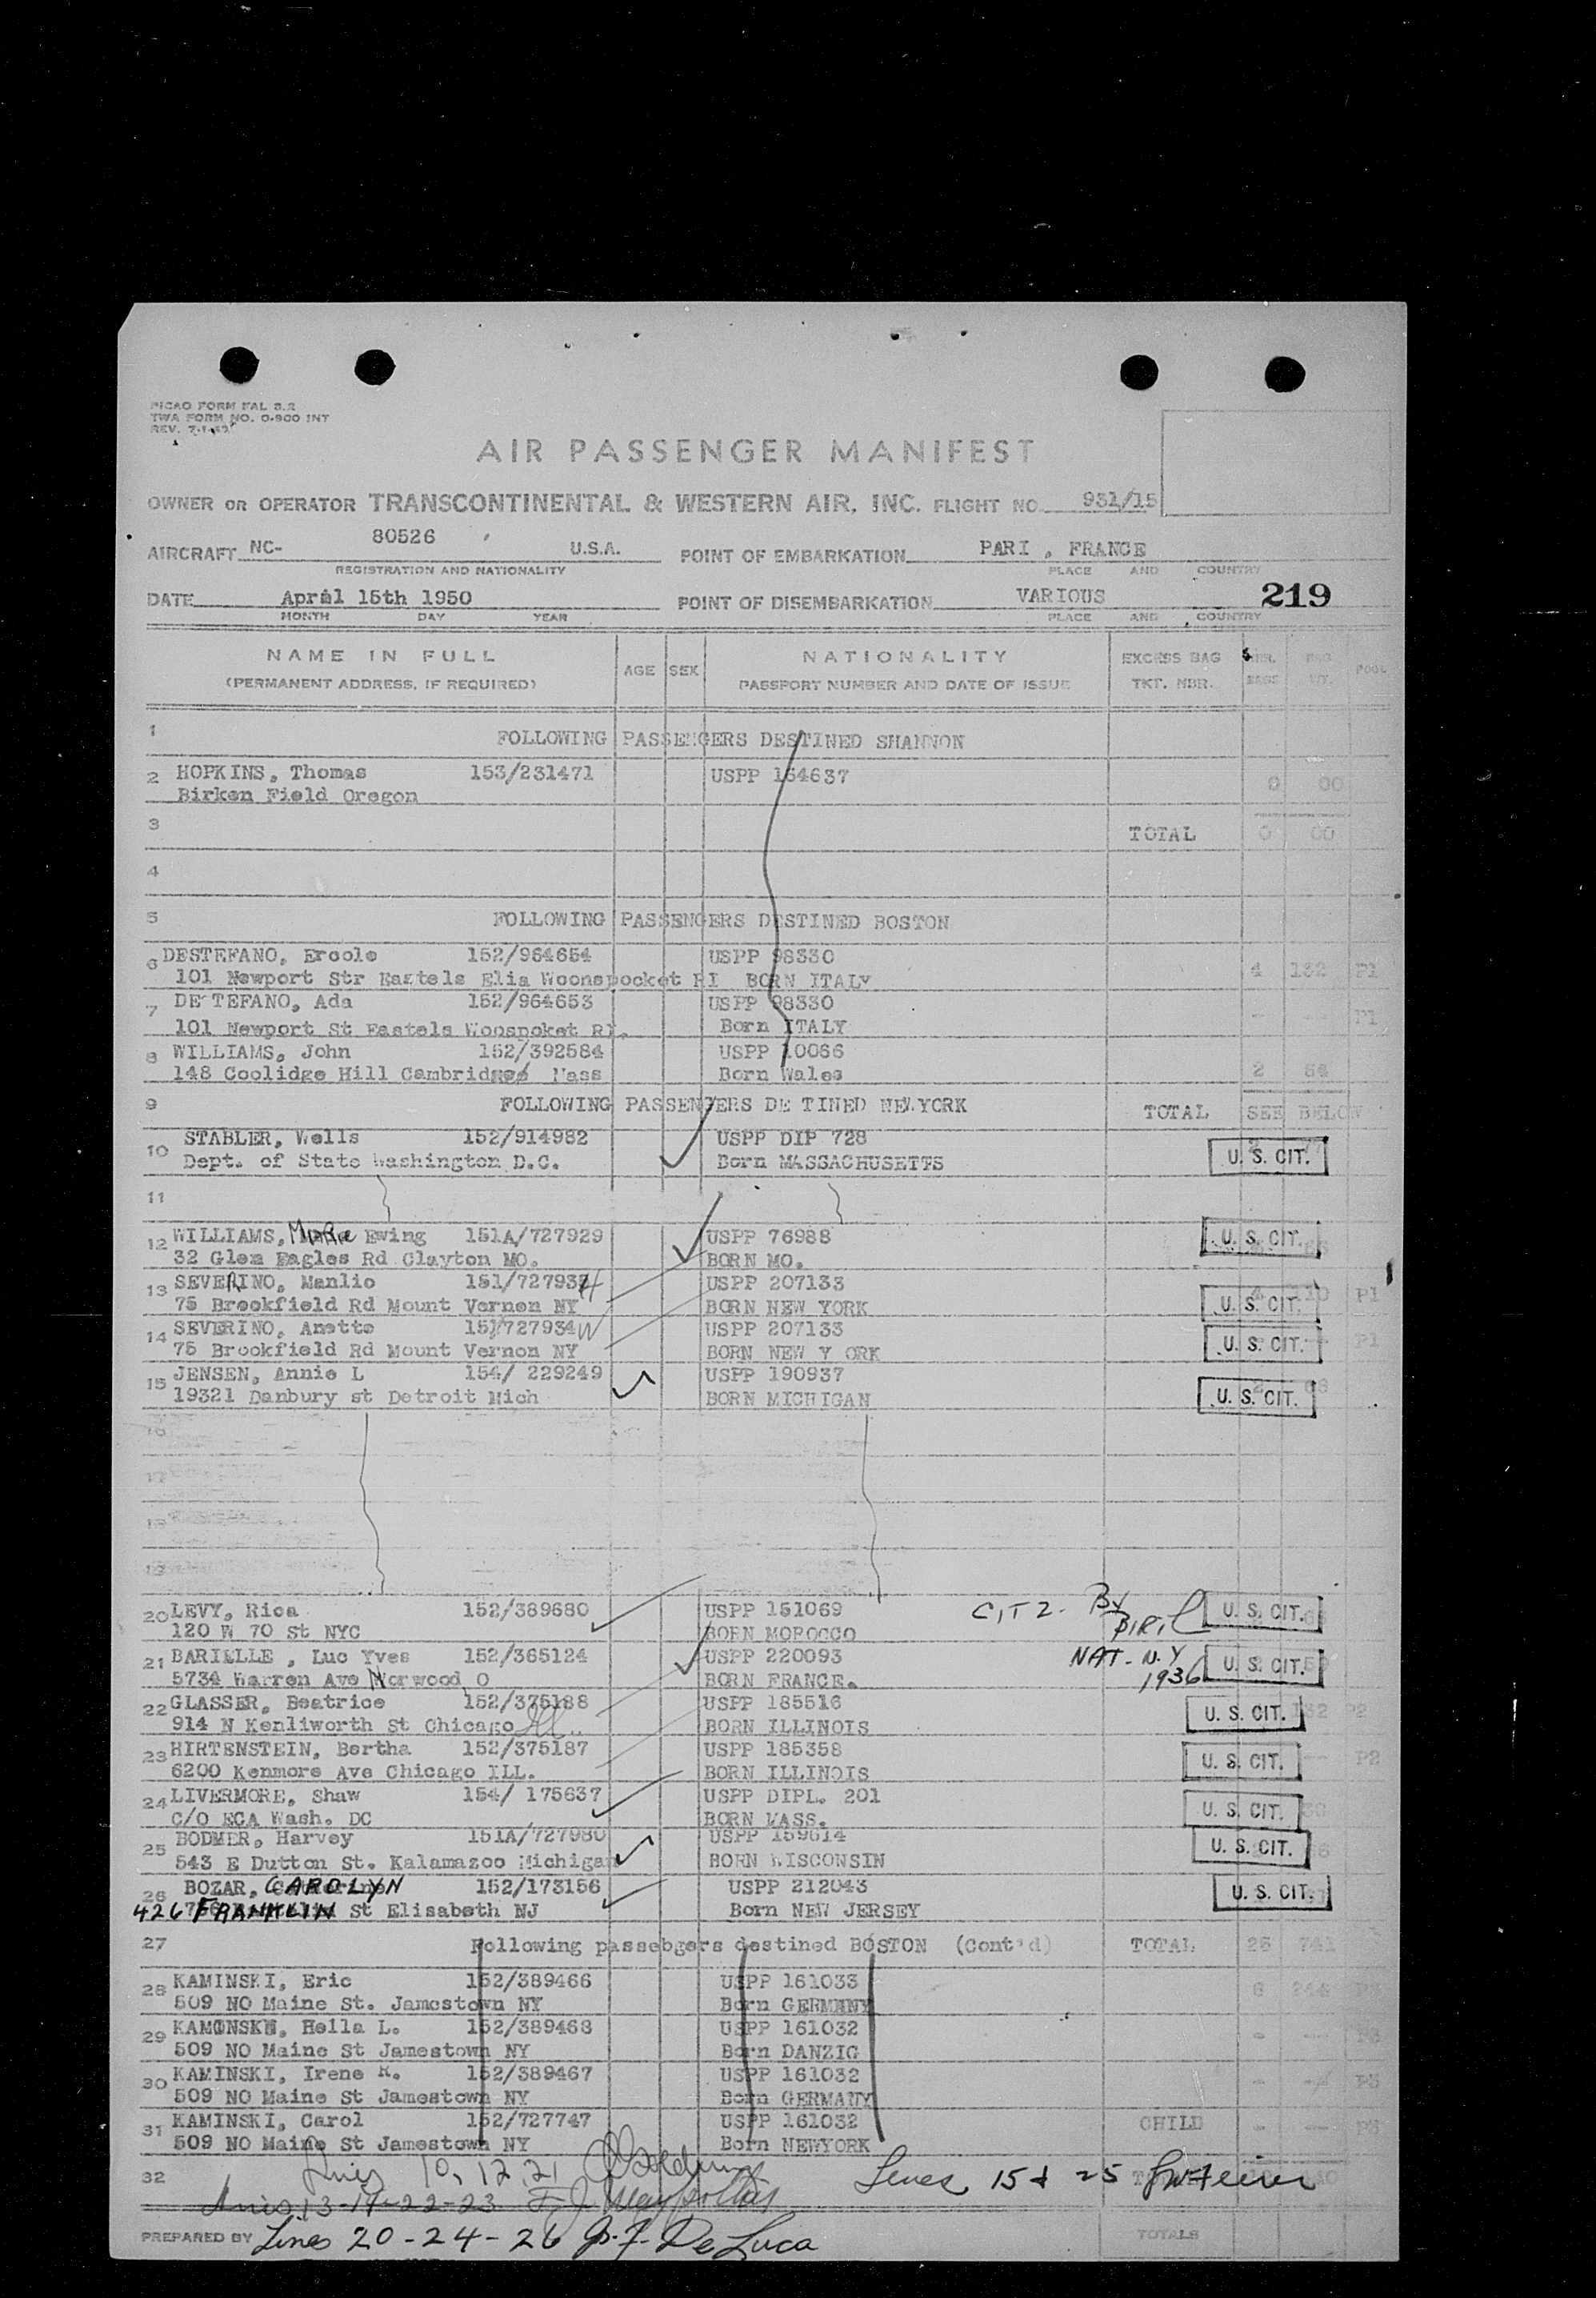 PICAO FORM FAL 8.2
TWA FORM NO. 0-900 INT
REV. 7-1-47
AIR PASSENGER MANIFEST
OWNER OR OPERATOR TRANSCONTINENTAL & WESTERN AIR, INC. FLIGHT NO. 931/15
AIRCRAFT NC- 80526 U.S.A. POINT OF EMBARKATION PARI , FRANCE
REGISTRATION AND NATIONALITY PLACE AND COUNTRY
DATE April 15th 1950 POINT OF DISEMBARKATION VARIOUS 219
MONTH DAY YEAR PLACE AND COUNTRY
NAME IN FULL AGE SEX NATIONALITY EXCESS BAG
(PERMANENT ADDRESS, IF REQUIRED) PASSPORT NUMBER AND DATE OF ISSUE TKT. NBR. BAGS WT. POOL
1 FOLLOWING PASSENGERS DESTINED SHANNON
2 HOPKINS, Thomas 153/231471 USPP 154637 0 00
Birken Field Oregon
3 TOTAL 0 00
4
5 FOLLOWING PASSENGERS DESTINED BOSTON
6 DESTEFANO, Ercole 152/964654 USPP 98330 4 132 P1
101 Newport Str Eastels Elia Woonspocket RI BORN ITALY
7 DE TEFANO, Ada 152/964653 USPP 98330 - P1
101 Newport St Eastels Woospoket RI. Born ITALY
8 WILLIAMS, John 152/392584 USPP 10066 2 54
148 Coolidge Hill Cambridge Mass Born Wales
9 FOLLOWING PASSENGERS DE TINED NEW.YORK TOTAL SEE BELOW
10 STABLER, Wells 152/914982 USPP DIP 728 U. S. CIT.
Dept. of State Washington D.C. Born MASSACHUSETTS
11
12 WILLIAMS, Ewing 151A/727929 USPP 76988 U. S. CIT.
32 Glen Eagles Rd Clayton MO. BORN MO.
13 SEVERINO, Manlio 151/727933 H USPP 207133 U. S. CIT. P1
75 Brookfield Rd Mount Vernon NY BORN NEW YORK
14 SEVERINO, Anette 151/727934 W USPP 207133 U. S. CIT. P1
75 Brookfield Rd Mount Vernon NY BORN NEW Y ORK
15 JENSEN, Annie L 154/ 229249 USPP 190937 U. S. CIT.
19321 Danbury st Detroit Mich BORN MICHIGAN
16
17
18
19
20 LEVY, Rica 152/389680 USPP 151069 CITZ. By BIRTH U. S. CIT.
120 W 70 St NYC BORN MOROCCO
21 BARIELLE , Luc Yves 152/365124 USPP 220093 NAT- N.Y 1936 U. S. CIT.
5734 Warren Ave Norwood O BORN FRANCE.
22 GLASSER, Beatrice 152/375188 USPP 185516 U. S. CIT. P2
914 N Kenliworth St Chicago Ill. BORN ILLINOIS
23 HIRTENSTEIN, Bertha 152/375187 USPP 185358 U. S. CIT. P2
6200 Kenmore Ave Chicago ILL. BORN ILLINOIS
24 LIVERMORE, Shaw 154/ 175637 USPP DIPL. 201 U. S. CIT.
C/O ECA Wash. DC BORN MASS.
25 BODMER, Harvey 151A/727980 USPP 159614 U. S. CIT.
543 E Dutton St. Kalamazoo Michigan BORN WISCONSIN
26 BOZAR, CAROLYN 152/173156 USPP 212043 U. S. CIT.
426 FRANKLIN St Elisabeth NJ Born NEW JERSEY
27 Following passebgers destined BOSTON (Cont'd) TOTAL 25 741
28 KAMINSKI, Eric 152/389466 USPP 161033
509 NO Maine St. Jamestown NY Born GERMANY
29 KAMONSKN, Hella L. 152/389468 USPP 161032
509 NO Maine St Jamestown NY Born DANZIG
30 KAMINSKI, Irene R. 152/389467 USPP 161032 P3
509 NO Maine St Jamestown NY Born GERMANY
31 KAMINSKI, Carol 152/727747 USPP 161032 CHILD - P3
509 NO Maine St Jamestown NY Born NEWYORK
32 Lines 10, 12, 21 Lines 15 & 25
Lines 13-14-22-23
PREPARED BY Lines 20-24-26 J. F. De Luca TOTALS